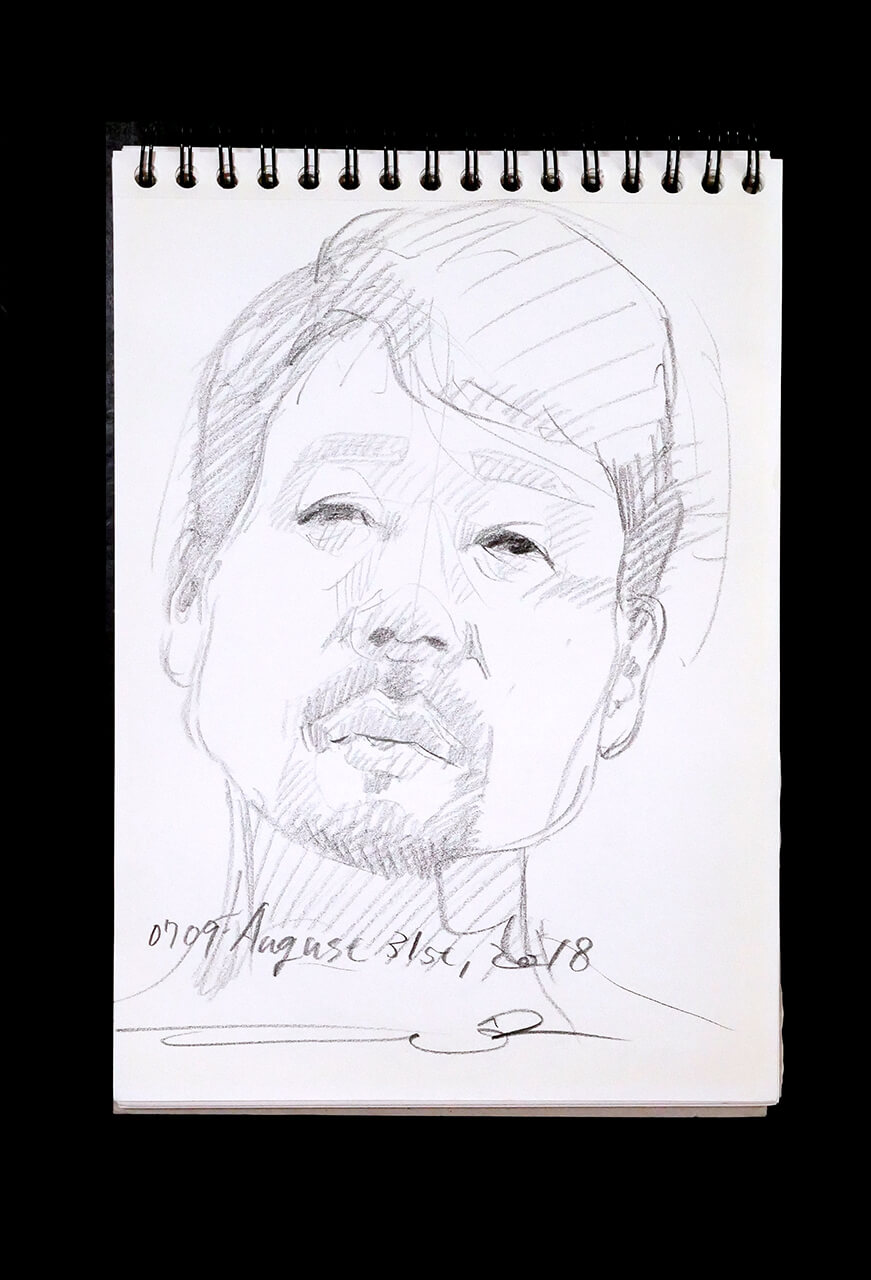 0709 August 31st, 2018